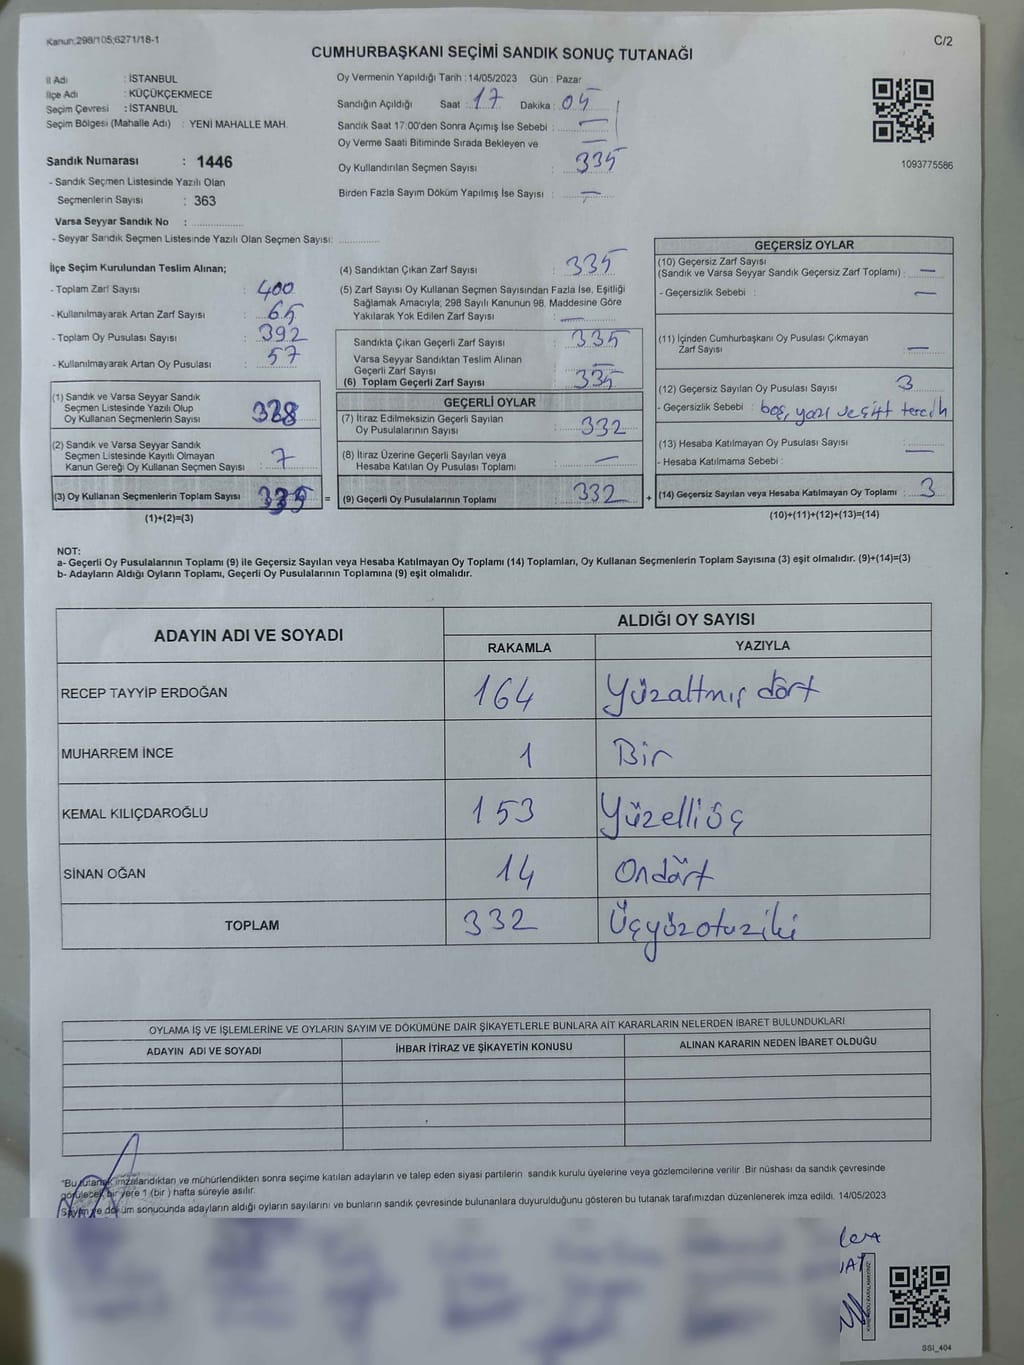 Kanun;298/105;6271/18-1
C/2
CUMHURBAŞKANI SEÇİMİ SANDIK SONUÇ TUTANAĞI
İl Adı : İSTANBUL
İlçe Adı : KÜÇÜKÇEKMECE
Seçim Çevresi : İSTANBUL
Seçim Bölgesi (Mahalle Adı) : YENİ MAHALLE MAH.
Sandık Numarası : 1446
- Sandık Seçmen Listesinde Yazılı Olan
Seçmenlerin Sayısı : 363
Varsa Seyyar Sandık No :
- Seyyar Sandık Seçmen Listesinde Yazılı Olan Seçmen Sayısı:
Oy Vermenin Yapıldığı Tarih : 14/05/2023 Gün : Pazar
Sandığın Açıldığı Saat : 17 Dakika : 05
Sandık Saat 17:00'den Sonra Açımış İse Sebebi : —
Oy Verme Saati Bitiminde Sırada Bekleyen ve —
Oy Kullandırılan Seçmen Sayısı : 335
Birden Fazla Sayım Döküm Yapılmış İse Sayısı : —
1093775586
İlçe Seçim Kurulundan Teslim Alınan;
- Toplam Zarf Sayısı : 400
- Kullanılmayarak Artan Zarf Sayısı : 65
- Toplam Oy Pusulası Sayısı : 392
- Kullanılmayarak Artan Oy Pusulası : 57
(1) Sandık ve Varsa Seyyar Sandık
Seçmen Listesinde Yazılı Olup
Oy Kullanan Seçmenlerin Sayısı : 328
(2) Sandık ve Varsa Seyyar Sandık
Seçmen Listesinde Kayıtlı Olmayan
Kanun Gereği Oy Kullanan Seçmen Sayısı : 7
(3) Oy Kullanan Seçmenlerin Toplam Sayısı : 335 =
(1)+(2)=(3)
(4) Sandıktan Çıkan Zarf Sayısı : 335
(5) Zarf Sayısı Oy Kullanan Seçmen Sayısından Fazla İse, Eşitliği
Sağlamak Amacıyla; 298 Sayılı Kanunun 98. Maddesine Göre
Yakılarak Yok Edilen Zarf Sayısı : —
Sandıkta Çıkan Geçerli Zarf Sayısı : 335
Varsa Seyyar Sandıktan Teslim Alınan
Geçerli Zarf Sayısı : —
(6) Toplam Geçerli Zarf Sayısı : 335
GEÇERLİ OYLAR
(7) İtiraz Edilmeksizin Geçerli Sayılan
Oy Pusulalarının Sayısı : 332
(8) İtiraz Üzerine Geçerli Sayılan veya
Hesaba Katılan Oy Pusulası Toplamı : —
(9) Geçerli Oy Pusulalarının Toplamı : 332 +
GEÇERSİZ OYLAR
(10) Geçersiz Zarf Sayısı
(Sandık ve Varsa Seyyar Sandık Geçersiz Zarf Toplamı) : —
- Geçersizlik Sebebi : —
(11) İçinden Cumhurbaşkanı Oy Pusulası Çıkmayan
Zarf Sayısı : —
(12) Geçersiz Sayılan Oy Pusulası Sayısı : 3
- Geçersizlik Sebebi : boş, yazı ve çift tercih
(13) Hesaba Katılmayan Oy Pusulası Sayısı : —
- Hesaba Katılmama Sebebi :
(14) Geçersiz Sayılan veya Hesaba Katılmayan Oy Toplamı : 3
(10)+(11)+(12)+(13)=(14)
NOT:
a- Geçerli Oy Pusulalarının Toplamı (9) ile Geçersiz Sayılan veya Hesaba Katılmayan Oy Toplamı (14) Toplamları, Oy Kullanan Seçmenlerin Toplam Sayısına (3) eşit olmalıdır. (9)+(14)=(3)
b- Adayların Aldığı Oyların Toplamı, Geçerli Oy Pusulalarının Toplamına (9) eşit olmalıdır.
ADAYIN ADI VE SOYADI
ALDIĞI OY SAYISI
RAKAMLA YAZIYLA
RECEP TAYYİP ERDOĞAN 164 Yüzaltmış dört
MUHARREM İNCE 1 Bir
KEMAL KILIÇDAROĞLU 153 Yüzelliüç
SİNAN OĞAN 14 Ondört
TOPLAM 332 Üçyüzotuziki
OYLAMA İŞ VE İŞLEMLERİNE VE OYLARIN SAYIM VE DÖKÜMÜNE DAİR ŞİKAYETLERLE BUNLARA AİT KARARLARIN NELERDEN İBARET BULUNDUKLARI
ADAYIN ADI VE SOYADI İHBAR İTİRAZ VE ŞİKAYETİN KONUSU ALINAN KARARIN NEDEN İBARET OLDUĞU
*Bu tutanak imzalandıktan ve mühürlendikten sonra seçime katılan adayların ve talep eden siyasi partilerin sandık kurulu üyelerine veya gözlemcilerine verilir. Bir nüshası da sandık çevresinde
görülecek bir yere 1 (bir) hafta süreyle asılır.
Sayım ve döküm sonucunda adayların aldığı oyların sayılarını ve bunların sandık çevresinde bulunanlara duyurulduğunu gösteren bu tutanak tarafımızdan düzenlenerek imza edildi. 14/05/2023
SSI_404